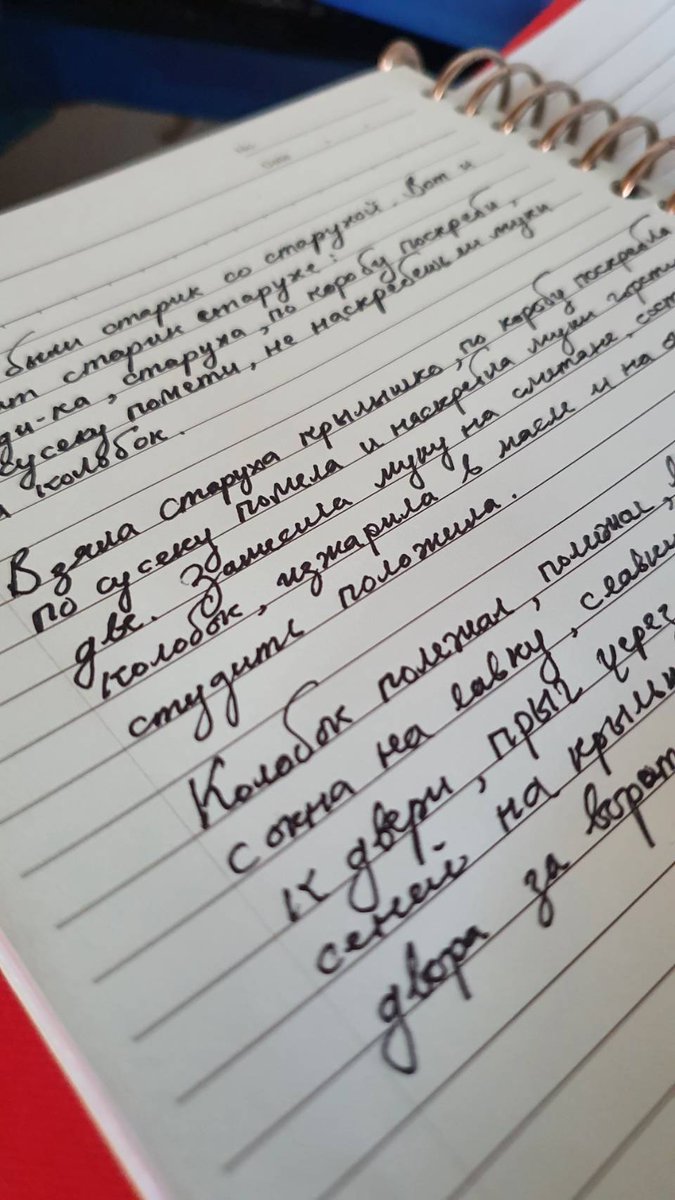 были старик со старухой. Вот и
старик старухе:
ди-ка, старуха, по коробу поскреби,
сусеку помети, не наскребёшь ли муки
колобок.
Взяла старуха крылышко, по коробу поскребла
по сусеку помела и наскребла муки
две. Замесила муку на сметане,
колобок, изжарила в масле и на
студить положила.
Колобок полежал, полежал,
с окна на лавку, с лавки
к двери, прыг через
сеней на крыль
двора за ворот